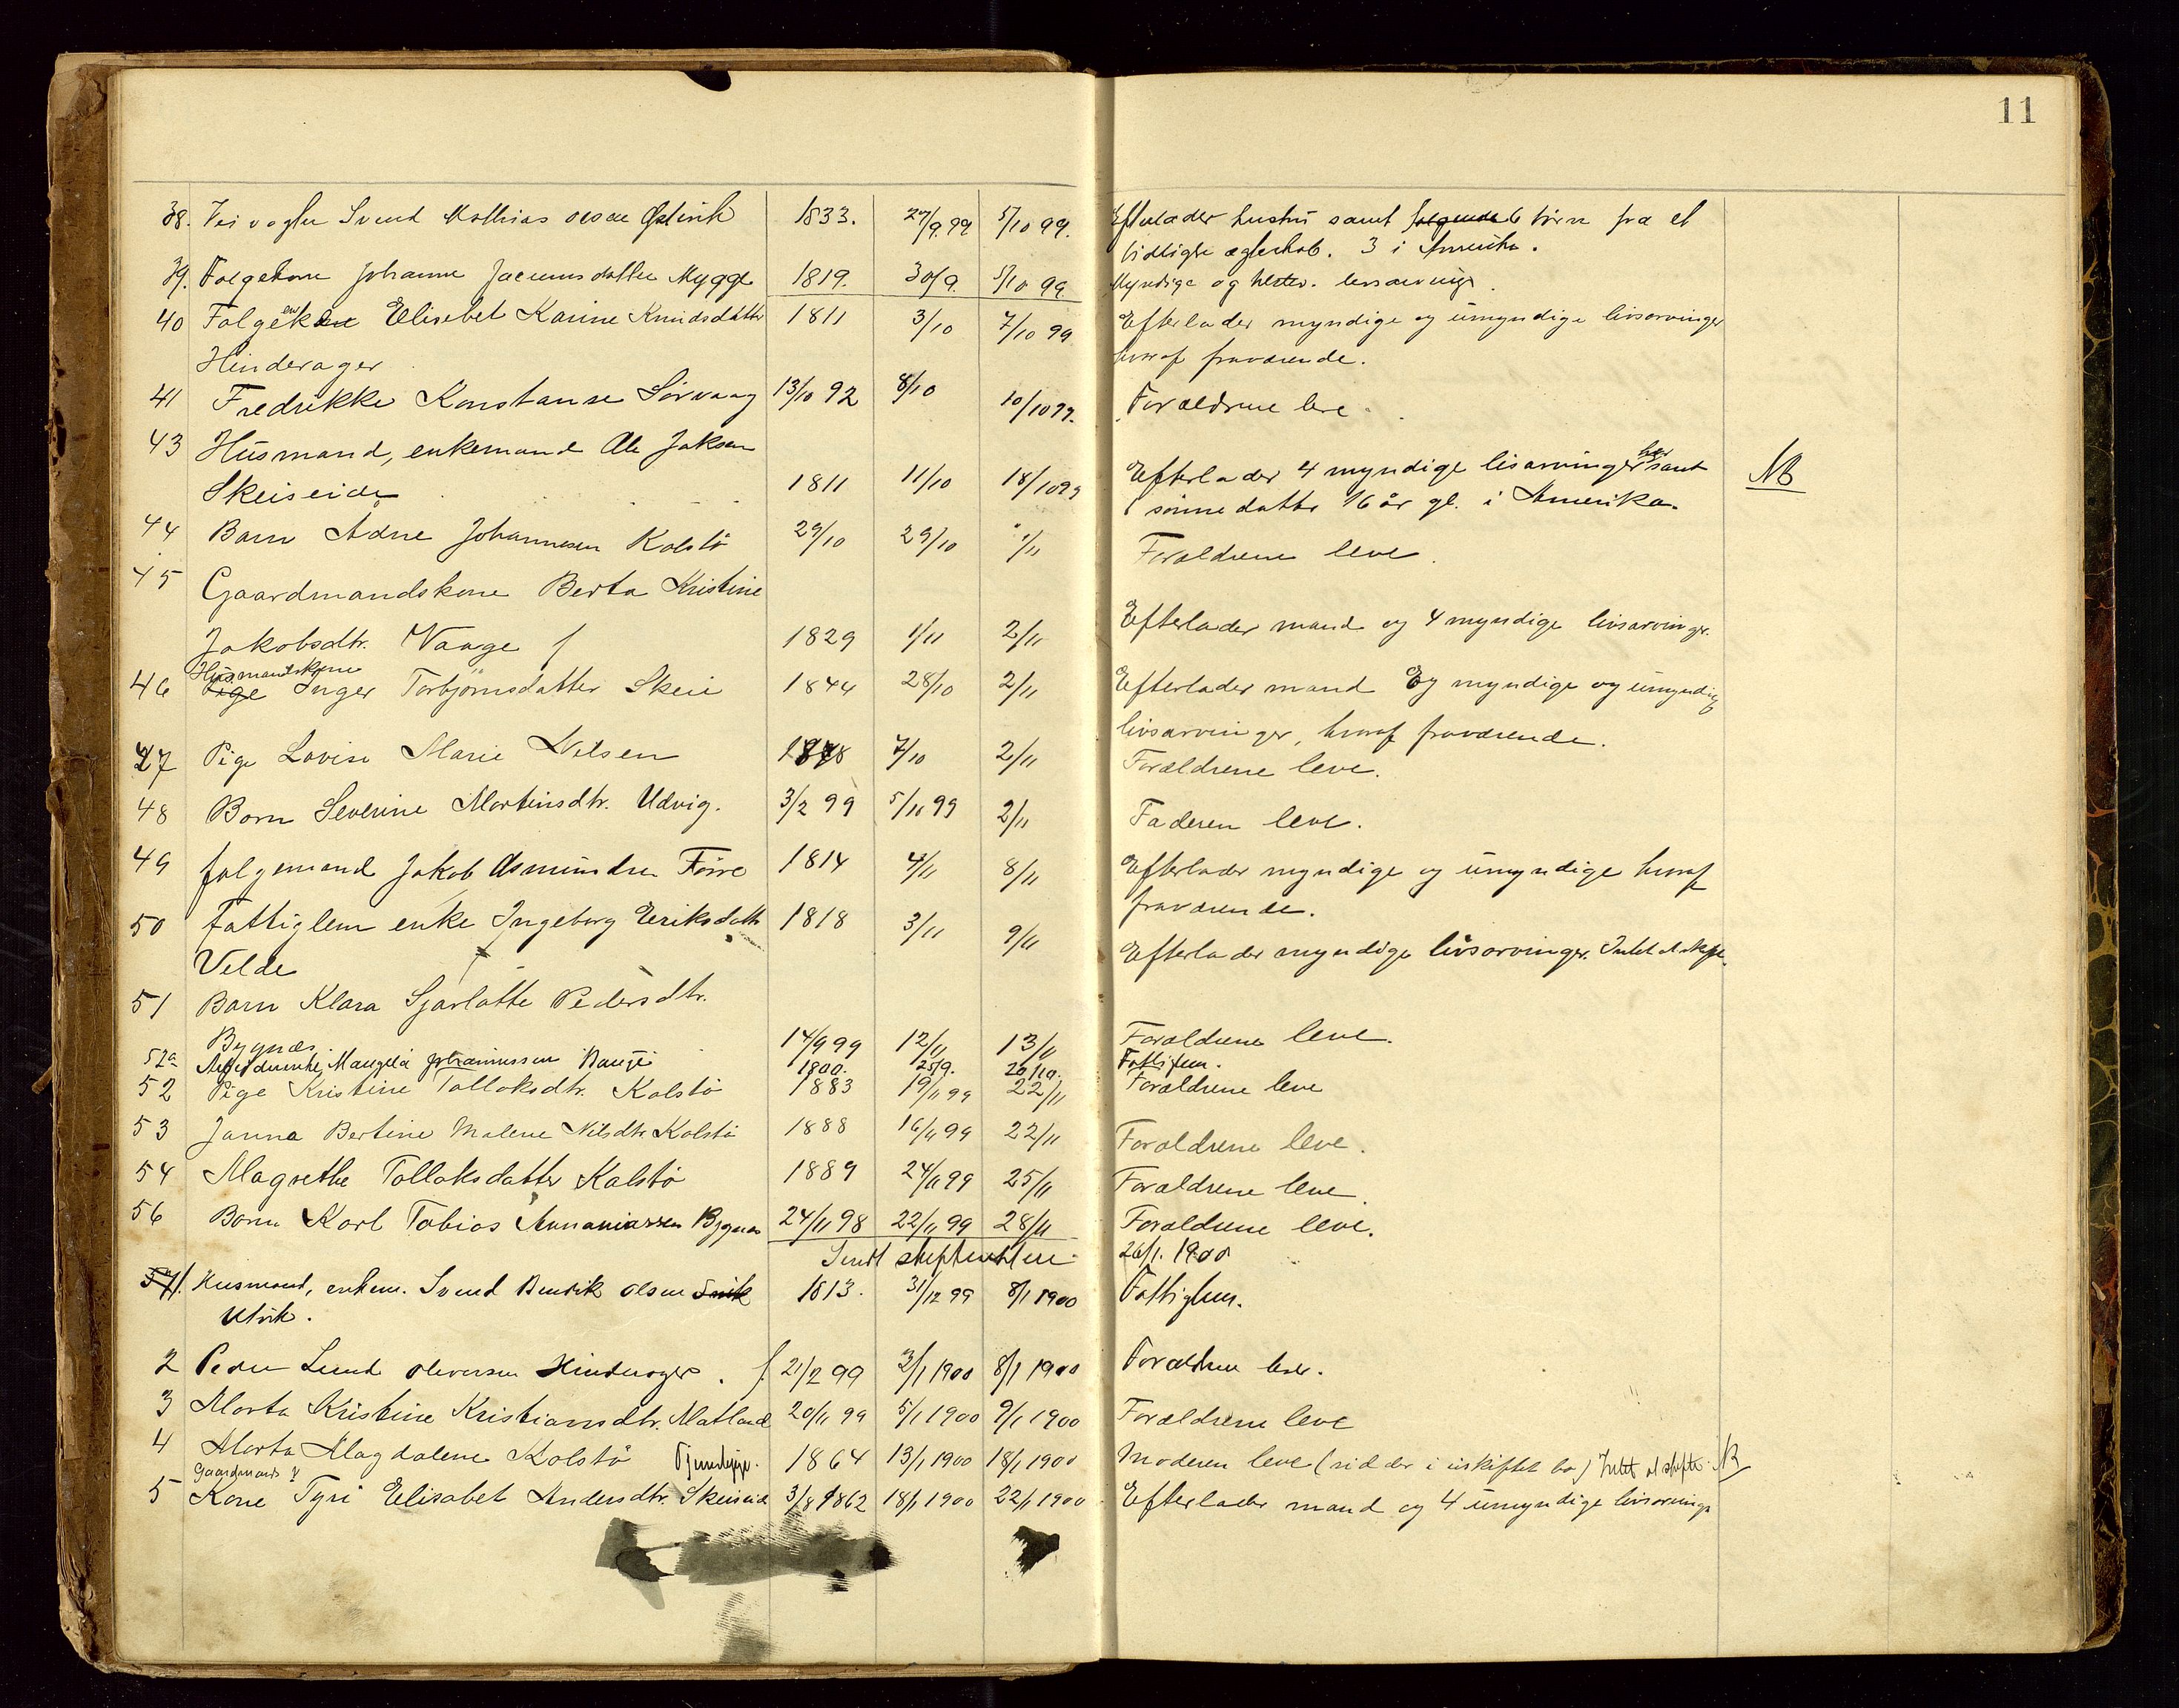 11
38. Veivogter Svend Mathias Olsen 1833. 27/9 99 5/10 99. Efterlader hustru samt følgende 6 børn fra et
tidligere ægteskab. 3 i Amerika.
39. Folgekone Johanne Jacumsdatter Mygge 1819. 30/9. 5/10 99 Myndige og livsarvinger.
40 Folgeenke Elisebet Karine Knudsdatter 1811 3/10 7/10 99 Efterlader myndige og umyndige livsarvinger
Hinderager hvoraf fraværende.
41 Fredrikke Konstanse Sörvaag 13/10 92 8/10 10/10 99. Forældrene leve.
43 Husmand, enkemand Ole Jaksen
Skeiseide 1811 11/10 18/10 99 Efterlader 4 myndige livsarvinger her samt NB
1 sönnedatter 16 år gl. i Amerika.
44 Barn Adne Johannesen Kolstö 29/10 29/10 1/11 Forældrene leve.
45 Gaardmandskone Berta Kristine
Jakobsdtr. Vaage 1829 1/11 2/11 Efterlader mand og 4 myndige livsarvinger.
Husmandskone
46 Pige Inger Torbjörnsdatter Skeie 1844 28/10 2/11 Efterlader mand og myndige og umyndige
livsarvinger, hvoraf fraværende.
47 Pige Lovise Marie Nilsen 1878 7/10 2/11 Forældrene leve.
48 Barn Severine Martinsdtr. Udvig. 3/2 99 5/10 99 2/11 Faderen leve.
49 folgemand Jakob Asmundsen Förre 1814 4/11 8/11 Efterlader myndige og umyndige hvoraf
fraværende.
50 Fattiglem enke Ingeborg Eriksdatter 1818 3/11 9/11
Velde Efterlader myndige livsarvinger. Intet at skifte.
51 Barn Klara Sjarlotte Pedersdtr.
Bygnes 14/9 99 12/11 13/11 Forældrene leve.
52a Arbeiderenke Johannessen 1800. 25/9. 20/10. Fattiglem.
52 Pige Kristine Tolloksdtr. Kolstö 1883 19/11 99 22/11 Forældrene leve
53 Janna Bertine Malene Nilsdtr. Kolstö 1888 16/11 99 22/11 Forældrene leve.
54 Magrethe Tolloksdatter Kalstö 1889 24/11 99 25/11 Forældrene leve.
56 Barn Karl Tobias Annaniassen Bygnes 24/11 98 22/11 99 28/11 Forældrene leve.
Sendt skifteretten 26/1. 1900
57/1. Husmand, enkem. Svend Bendik Olsen 1813. 31/12 99 8/1 1900 Fattiglem.
Utvik.
2 Peder Lund Oliversen Hinderager. f. 21/2 99 2/1 1900 8/1 1900 Forældrene lever.
3 Marta Kristine Kristiansdtr. Matland 20/11 99 5/1 1900 9/1 1900 Forældrene leve
4 Marta Magdalene Kolstö Tjenestepige. 1864 13/1 1900 18/1 1900 Moderen leve (sidder i uskiftet bo) Intet at skifte. NB
Gaardmands
5 Kone Tyri Elisabet Andersdtr. Skeiseid 3/8 1862 18/1 1900 22/1 1900 Efterlader mand og 4 umyndige livsarvinger